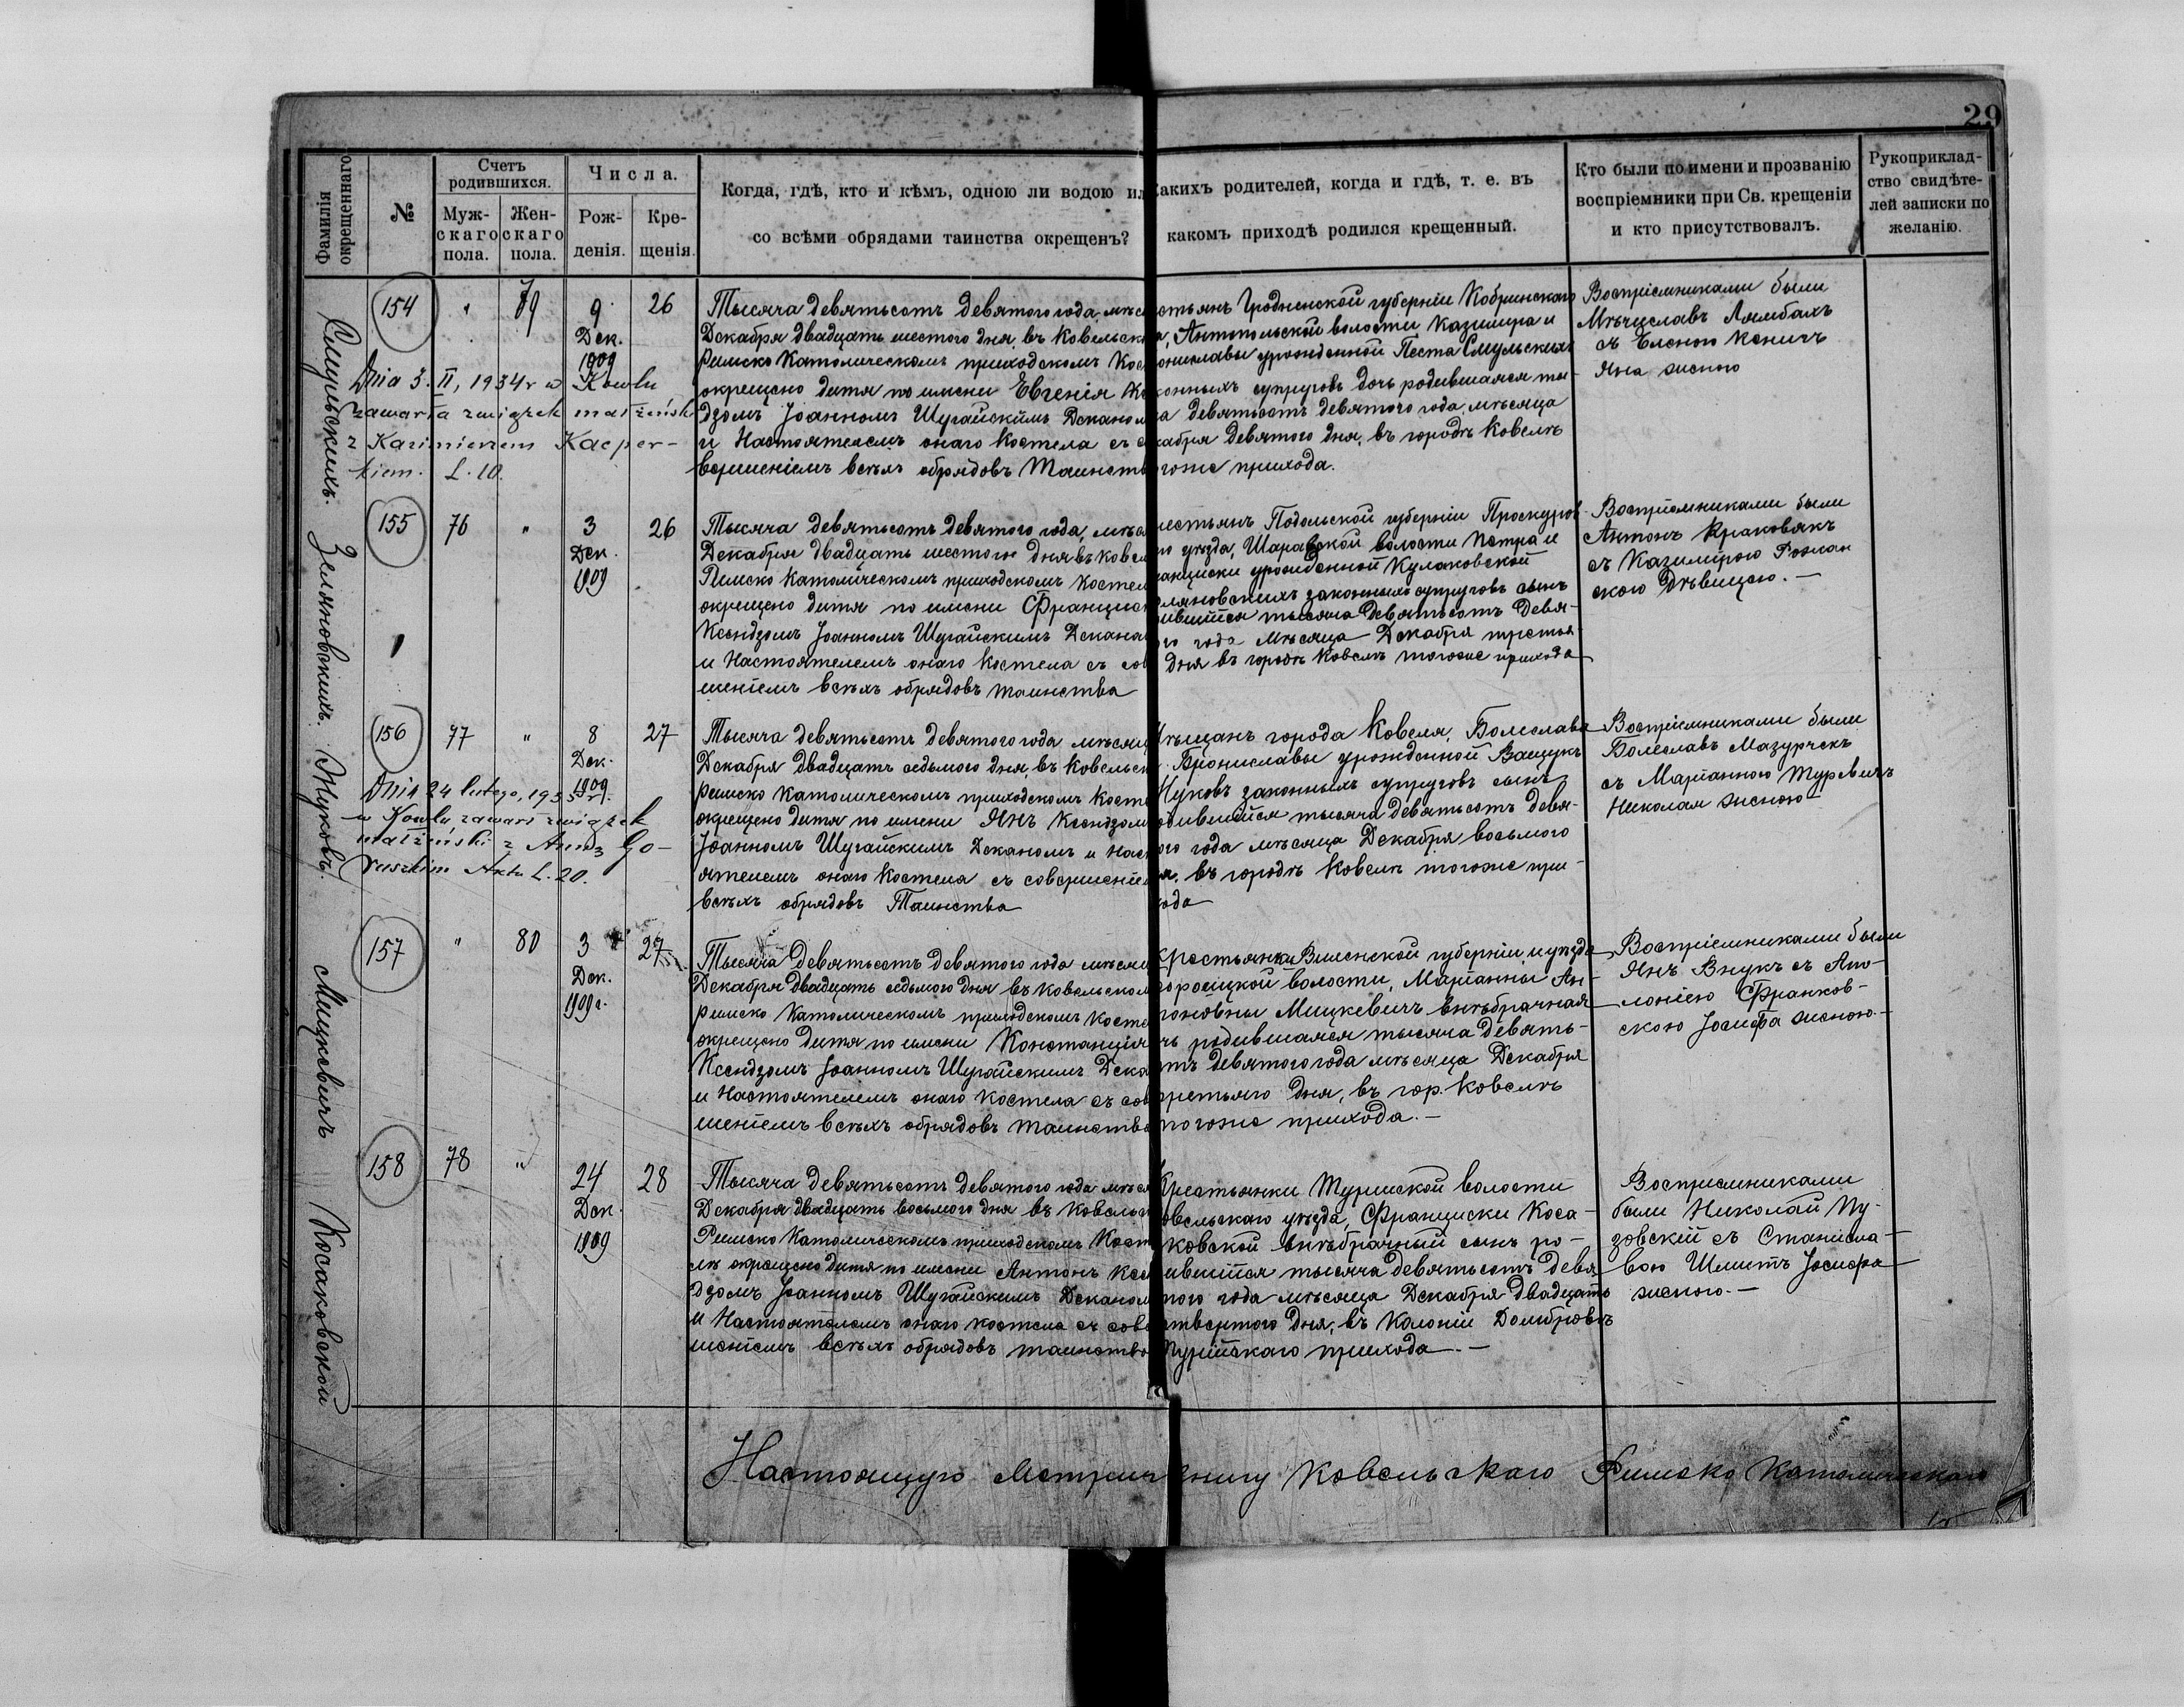 29
Фамилія окрещеннаго
№
Счетъ родившихся.
Муж-скаго пола.
Жен-скаго пола.
Числа.
Рож-денія.
Кре-щенія.
Когда, гдѣ, кто и кѣмъ, одною ли водою ил
со всѣми обрядами таинства окрещенъ?
Какихъ родителей, когда и гдѣ, т. е. въ
какомъ приходѣ родился крещенный.
Кто были по имени и прозванію
воспріемники при Св. крещеніи
и кто присутствовалъ.
Рукоприклад-
ство свидѣте-
лей записки по
желанію.
Смульскихъ.
154
"
79
9
Дек.
1909
26
Dnia 3. II, 1934 r w Kowlu
zawarła związek małżeńsk
z Kazimierzem Kacper-
kiem. L. 10.
Тысяча девятьсотъ девятого года, мѣс
Декабря двадцать шестого дня, въ Ковельск
Римско Католическомъ приходскомъ Кос
окрещено дитя по имени Евгенія Кс
дзомъ Іоанномъ Шугайскимъ Деканом
и Настоятелемъ онаго костела съ с
вершеніемъ всѣхъ обрядовъ Таинств
стьянъ Гродненской губерніи Кобринскаго
а, Антопольской волости Казимира и
ониславы урожденной Песта Смульскихъ
конныхъ супруговъ дочь родившаяся ты-
а девятьсотъ девятого года, мѣсяца
кабря девятого дня, въ городѣ Ковелѣ
тогоже прихода.
Воспріемниками были
Мѣчиславъ Лямбахъ
съ Еленою Кеничъ
Яна женою
Зеляновскихъ.
155
76
"
3
Дек.
1909
26
Тысяча девятьсотъ девятого года, мѣс
Декабря двадцать шестого дня въ Ковел
Римско Католическомъ приходскомъ Костел
окрещено дитя по имени Францис
Ксендзомъ Іоанномъ Шугайскимъ Декана
и Настоятелемъ онаго костела съ сов
шеніемъ всѣхъ обрядовъ таинства
рестьянъ Подольской губерніи Проскуров-
го уѣзда, Шаравской волости Петра и
ранциски урожденной Кулаковской
еляновскихъ законныхъ супруговъ сынъ
дившійся тысяча девятьсотъ девя-
го года мѣсяца Декабря третья
дня въ городѣ Ковелѣ тогоже прихода
Воспріемниками были
Антонъ Краковякъ
съ Казимірою Рожан
скою Дѣвицею.-
Жуковъ.
156
77
"
8
Дек.
1909
27
Dnia 24 lutego, 1935 r.
w Kowlu zawarł związek
małżeński z Anną Go-
ruszkim Akta L. 20.
Тысяча девятьсотъ девятого года мѣсяц
Декабря двадцать седьмого дня, въ Ковельск
Римско Католическомъ приходскомъ Косте
окрещено дитя по имени Янъ Ксендзом
Іоанномъ Шугайскимъ Деканомъ и Нас
ятелемъ онаго Костела съ совершеніе
всѣхъ обрядовъ Таинства
Мѣщанъ города Ковеля, Болеслава
Брониславы урожденной Ващукъ
Жуковъ законныхъ супруговъ сынъ
одившійся тысяча девятьсотъ девя-
ого года мѣсяца Декабря восьмого
я, въ городѣ Ковелѣ тогоже при-
хода
Воспріемниками были
Болеславъ Мазурчекъ
съ Маріанною Туревичъ
Николая женою
Мицкевичъ
157
"
80
3
Дек.
1909 г.
27
Тысяча девятьсотъ девятого года мѣсяц
Декабря двадцать седьмого дня въ Ковельском
Римско Католическомъ приходскомъ Косте
окрещено дитя по имени Констанція
Ксендзомъ Іоанномъ Шугайскимъ Дека
и Настоятелемъ онаго костела съ сов
шеніемъ всѣхъ обрядовъ таинства
Крестьянки Виленской губерніи и уѣзда
волости, Маріанны Ан-
тоновны Мицкевичъ внѣбрачная
чь родившаяся тысяча девять-
тъ девятого года мѣсяца Декабря
третьяго дня, въ гор. Ковелѣ
тогоже прихода.-
Воспріемниками были
Янъ Внукъ съ Апо-
лоніею Франков-
скою Іосифа женою.-
Косаковской
158
78
"
24
Дек.
1909
28
Тысяча девятьсотъ девятого года мѣся
Декабря двадцать восьмого дня въ Ковельск
Римско Католическомъ приходскомъ Кост
лѣ окрещено дитя по имени Антонъ Ксен
дзомъ Іоанномъ Шугайскимъ Деканом
и Настоятелемъ онаго костела съ сове
шеніемъ всѣхъ обрядовъ таинства
Крестьянки Турійской волости
овельскаго уѣзда, Франциски Коса-
ковской внѣбрачный сынъ ро-
ившійся тысяча девятьсотъ девя
того года мѣсяца Декабря двадцать
етвертого дня, въ Колоніи Домбровѣ
Турійскаго прихода.-
Воспріемниками
были Николай Пу-
зовскій съ Станисла-
вою Шмитъ Іосифа
женою.-
Настоящую Метрич книгу Ковельскаго Римско Католическаго